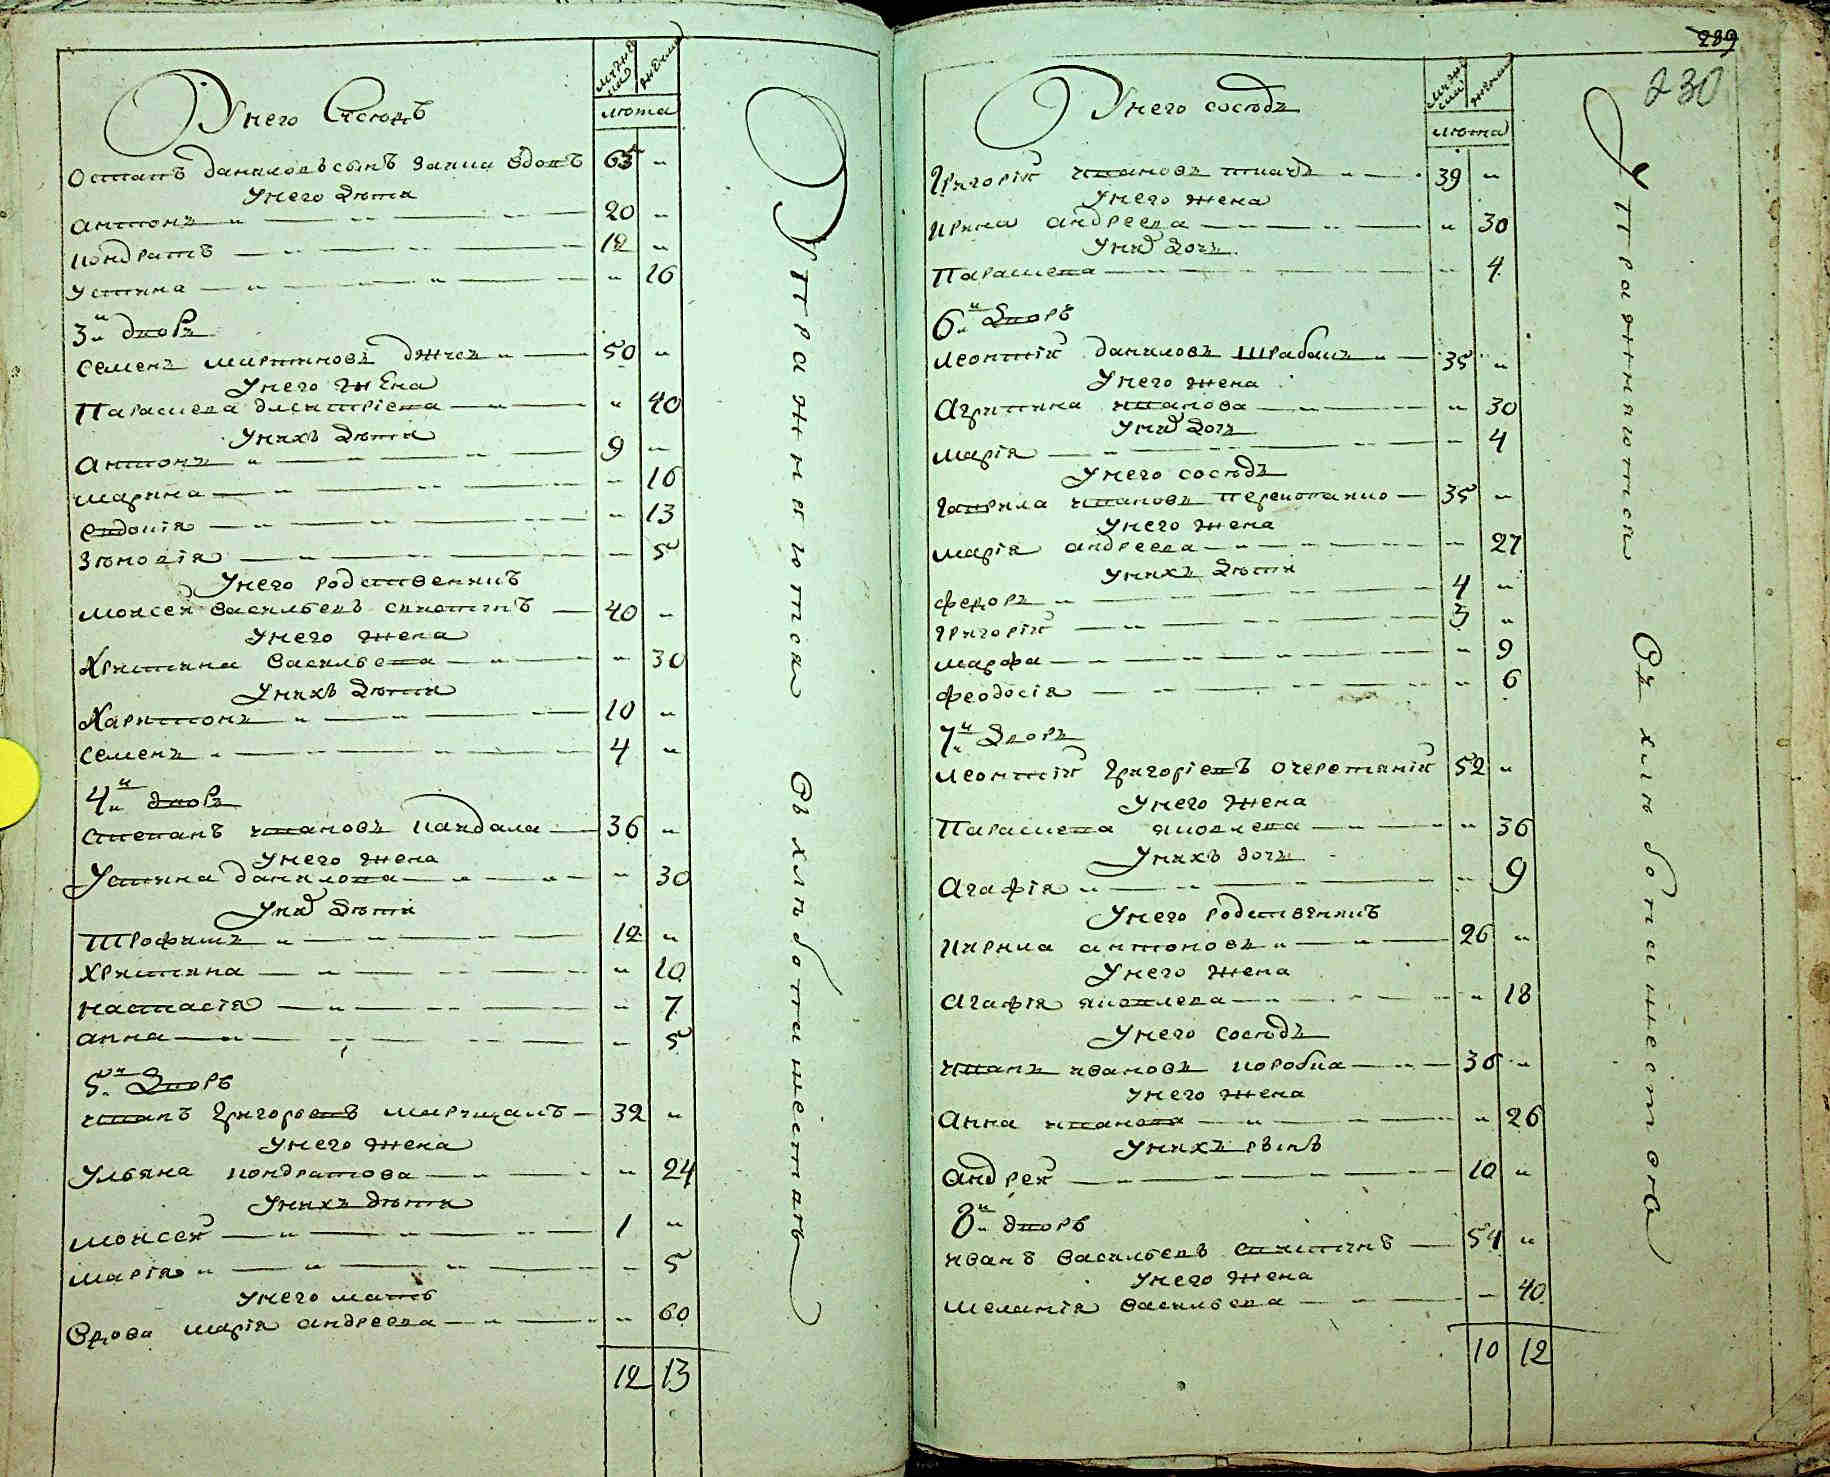 мужеска
женска
лѣта
У него Сусѣдъ
Остапъ даниловъ сынъ Заяца вдовъ 65 „
У него дѣти
Антонъ 20 „
Кондратъ 12 „
Устина „ 16
3й дворъ
Семенъ Мартиновъ 50 „
У него жена
Параскева Дмитріева „ 40
У нихъ дѣти
Антонъ 9 „
Марина „ 16
Евдокія „ 13
Зѣновія „ 5
У него родственникъ
Моисей Васильевъ 40 „
У него жена
Христина Васильева „ 30
У нихъ дѣти
Харитонъ 10 „
Семенъ 4 „
4й дворъ
Степанъ Ивановъ Кандала 36 „
У него жена
Устина Данилова „ 30
У них дѣти
Трофимъ 12 „
Христина „ 10
Настасія „ 7
Анна „ 5
5й дворъ
Иванъ Григорьевъ 32 „
У него жена
Ульяна Кондратова „ 24
У нихъ дѣти
Моисей 1 „
Марія „ 5
У него мать
Вдова Марія Андреева „ 60
12 13
Упражняются въ хлѣбопашествѣ
289
230
мужеска
женска
лѣта
У него сосѣдъ
Григорій Ивановъ Ткачъ 39 „
У него жена
Ирина Андреева „ 30
У них дочь
Параскева „ 4
6й дворъ
Леонтій Даниловъ Шрабакъ 35 „
У него жена
Агрипина Иванова „ 30
У них дочь
Марія „ 4
У него сосѣдъ
Гаврила Ивановъ 35 „
У него жена
Марія Андреева „ 27
У нихъ дѣти
Федоръ 4 „
Григорій 3 „
Марфа „ 9
Феодосія „ 6
7й дворъ
Леонтій Григоріевъ Очеретяній 52 „
У него жена
Параскева Яковлева „ 36
У нихъ дочь
Агафія „ 9
У него родственникъ
Кирила Антоновъ 26 „
У него жена
Агафія Яковлева „ 18
У него Сосѣдъ
Иванъ Ивановъ Коробка 36 „
У него жена
Анна Иванова „ 26
У нихъ сынъ
Андрей 10 „
8й дворъ
Иванъ Васильевъ 54 „
У него жена
Меланія Васильева „ 40
10 12
Упражняются въ хлѣбопашество